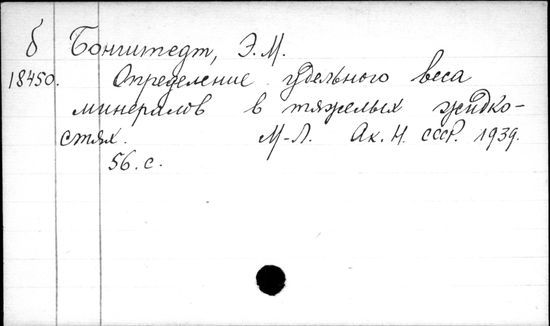 б Бонштедт, Э.М.
18450. Определение удельного веса
минералов в тяжелых жидко-
стях. М-Л. Ак. Н. СССР. 1939.
56. с.